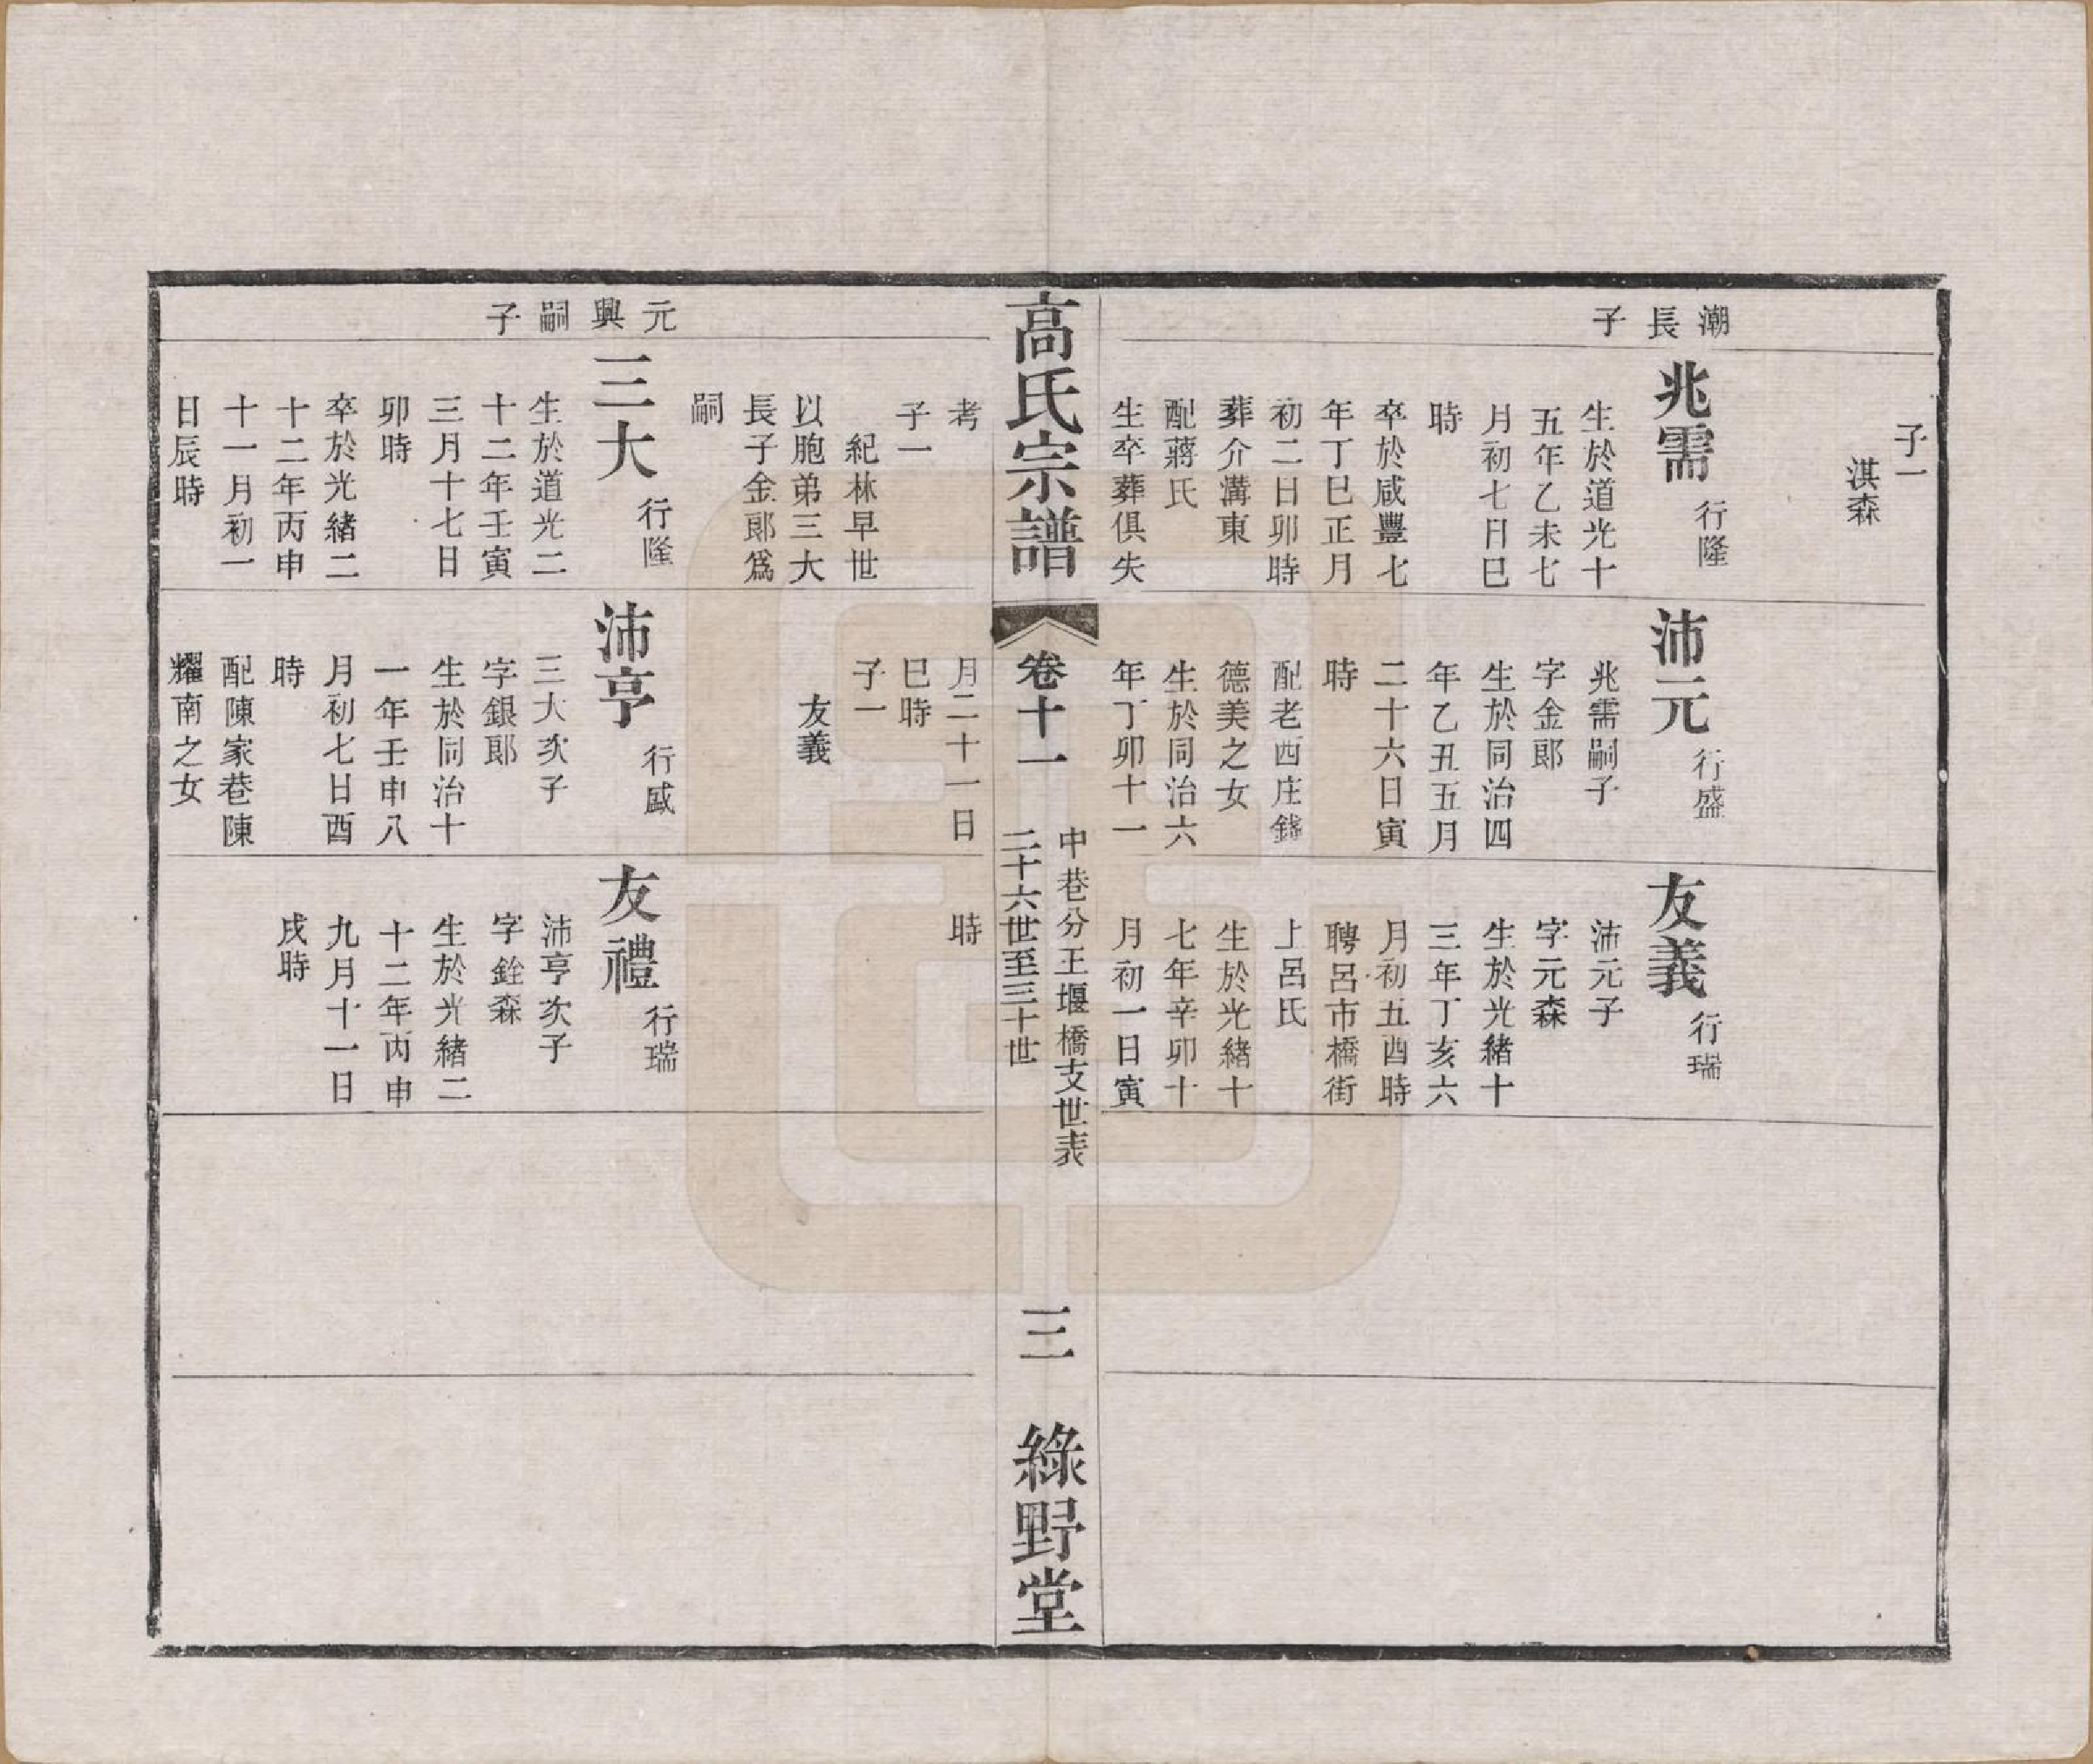 子一
淇森
潮長子
兆需 行隆
生於道光十
五年乙未七
月初七日巳
時
卒於咸豐七
年丁巳正月
初二日卯時
葬介溝東
配蔣氏
生卒葬俱失
沛元 行盛
兆需嗣子
字金郎
生於同治四
年乙丑五月
二十六日寅
時
配老西庄錢
德美之女
生於同治六
年丁卯十一
友義 行瑞
沛元子
字元森
生於光緒十
三年丁亥六
月初五酉時
聘呂市橋街
上呂氏
生於光緒十
七年辛卯十
月初一日寅
高氏宗譜
卷十一
中巷分王堰橋支世表
二十六世至三十世
三
綠野堂
考
子一
紀林早世
以胞弟三大
長子金郎爲
嗣
月二十一日
巳時
子一
友義
時
元興嗣子
三大 行隆
生於道光二
十二年壬寅
三月十七日
卯時
卒於光緒二
十二年丙申
十一月初一
日辰時
沛亨 行盛
三大次子
字銀郎
生於同治十
一年壬申八
月初七日酉
時
配陳家巷陳
耀南之女
友禮 行瑞
沛亨次子
字銓森
生於光緒二
十二年丙申
九月十一日
戌時